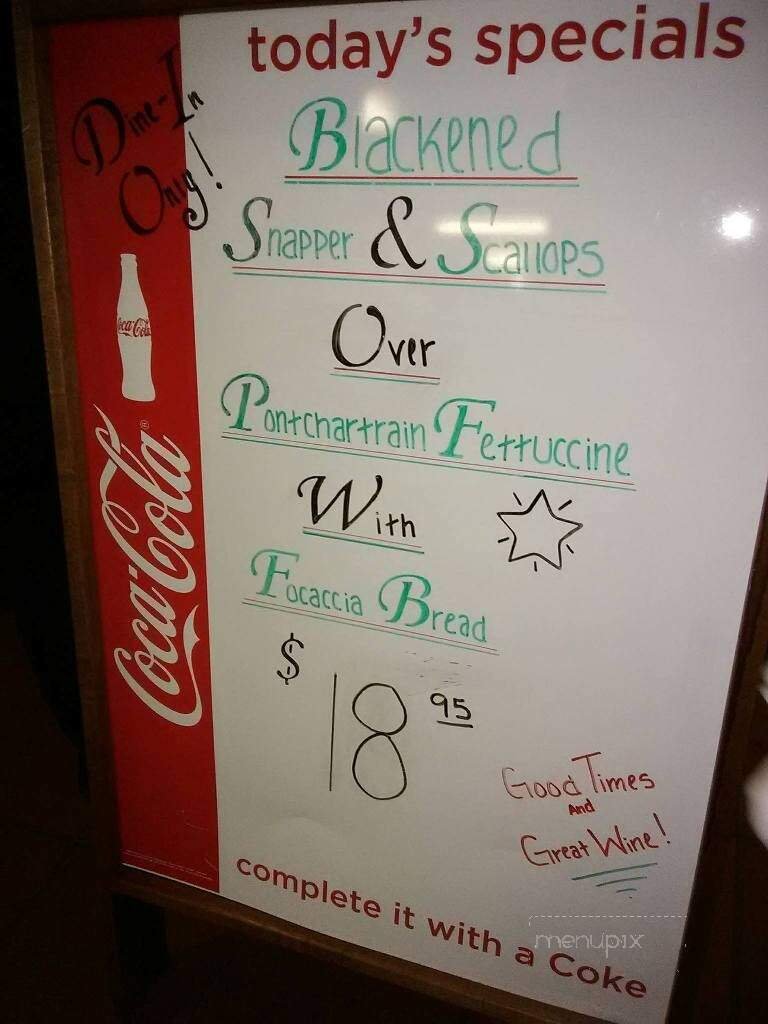 today's specials
Dine-In
Only!
Blackened
Snapper & Scallops
Over
Pontchartrain Fettuccine
With
Focaccia Bread
$ 18 95
Coca-Cola
Coca-Cola®
Good Times
And
Great Wine!
complete it with a Coke
menupix